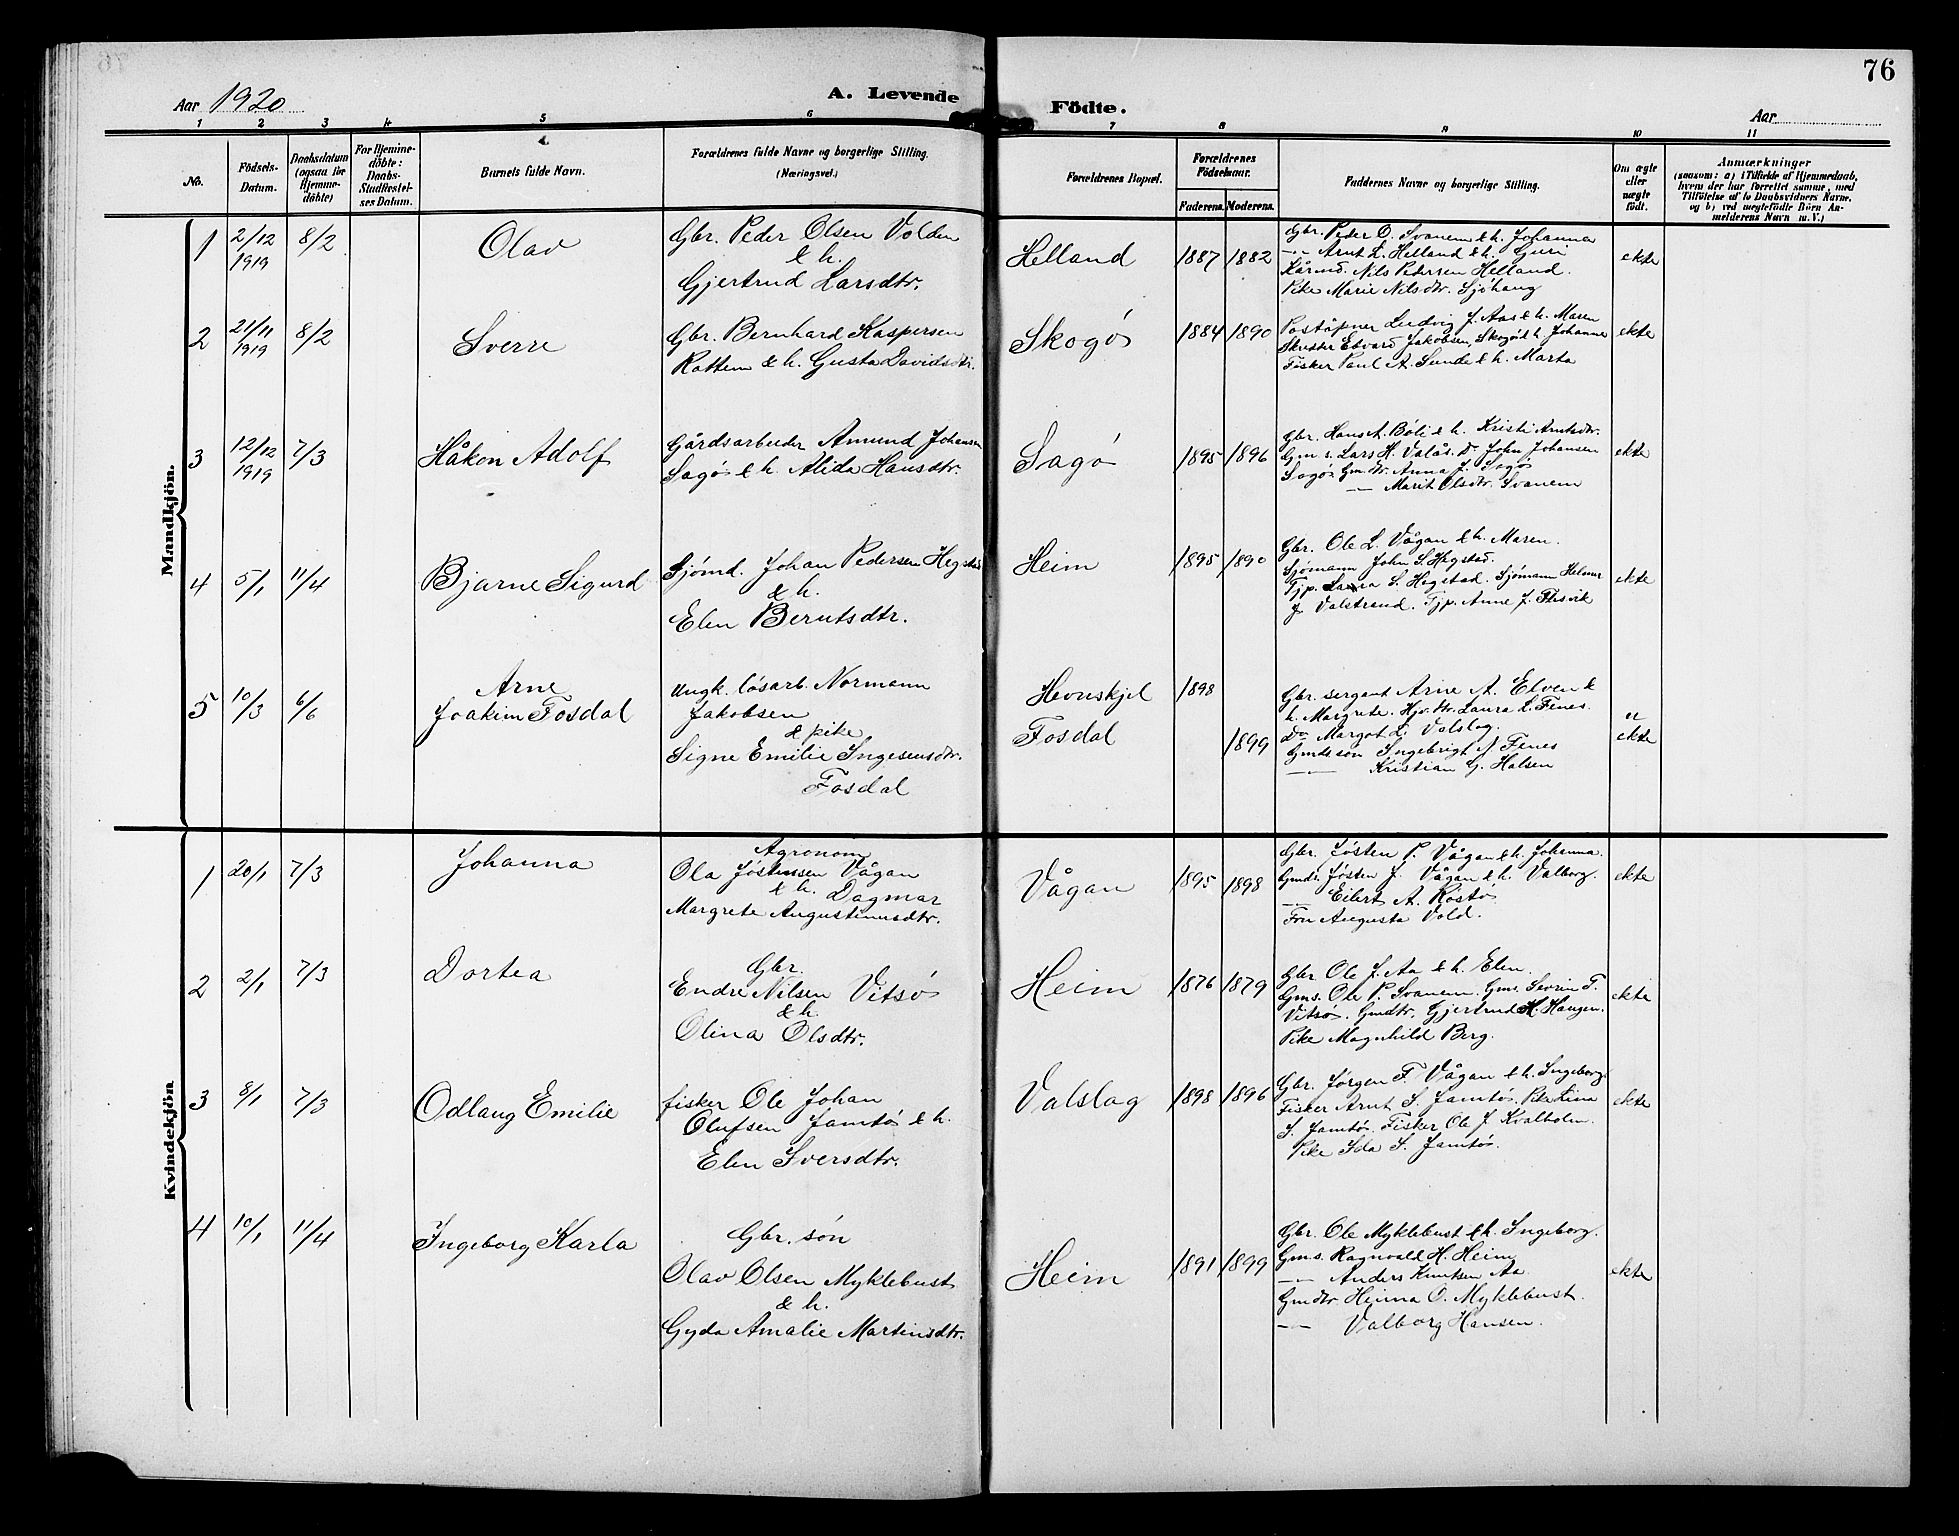 76
Aar 1920
A. Levende Födte.
Aar
1 2 3 4 5 6 7 8 9 10 11
No.
Födsels-Datum.
Daabsdatum (ogsaa for Hjemmedöbte)
For Hjemmedöbte: Daabs-Stadfæstelses Datum.
Barnets fulde Navn.
Forældrenes fulde Navne og borgerlige Stilling. (Næringsvei.)
Forældrenes Bopæl.
Forældrenes Födselsaar.
Faderens. Moderens.
Faddernes Navne og borgerlige Stilling.
Om ægte eller uægte födt.
Anmærkninger
(saasom: a) i Tilfælde af Hjemmedaab, hvem der har forrettet samme, med Tilföielse af to Daabsvidners Navne, og b) ved uægtefödte Börn Anmelderens Navn m. V.)
Mandkjön.
1 2/12 1919 8/2 Olav
Gbr. Peder Olsen Volden
& h.
Gjertrud Larsdtr.
Helland 1887 1882
Gbr. Peder O. Svanem & h. Johanna
—"— Arnt L. Helland & h. Guri
Kårmd. Nils Pedersen Helland.
Pike Marie Nilsdtr. Sjöhaug
ekte
2 21/11 1919 8/2 Sverre
Gbr. Bernhard Kaspersen
Rottem & h. Gusta Davidsdtr.
Skogö 1884 1890
Poståpner Ludvig J. Aas & h. Maren
Skredder Edvard Jakobsen, Skogö & h. Johanne
Fisker Paul A. Sunde & h. Marta
ekte
3 12/12 1919 7/3 Håkon Adolf
Gårdsarbeider Amund Johansen
Sagö & h. Alida Hansdtr.
Sagö 1895 1896
Gbr. Hans A. Böli & h. Kristi Arntsdtr.
Gm s. Lars H. Valås. Do John Johansen
Sagö. Gm.dtr. Anna J. Sagö
—"— Marit Olsdtr. Svanem
ekte
4 5/1 11/4 Bjarne Sigurd
Sjömd. Johan Pedersen Hegstad
& h.
Elen Berntsdtr.
Heim 1895 1890
Gbr. Ole L. Vågan & h. Maren.
Sjömann John S. Hegstad.
Tjp. Laura S. Hegstad. Sjömann Helmer
J. Valstrand. Tjp. Anne J. Flesvik
ekte
5 10/3 6/6 Arne
Joakim Fosdal
Ungk. lösarb. Normann
Jakobsen
& pike
Signe Emilie Ingesensdtr.
Fosdal
Hevnskjel 1898
Fosdal 1899
Gbr. sergant Arne A. Elven &
h. Margrete. Hjv. dtr. Laura L. Fenes.
Do Margot L. Valslag.
Gmdssön Ingebrigt A. Fenes
—"— Kristian G. Halsen
u
ekte
Kvindekjön
1 20/1 7/3 Johanna
Agronom
Ola Jöstensen Vågan
& h. Dagmar
Margrete Augustinusdtr.
Vågan 1895 1898
Gbr. Jösten P. Vågan & h. Johanna.
Gmds. Jösten J. Vågan & h. Valborg.
—"— Eilert A. Röstö
Fru Augusta Vold.
ekte
2 2/1 7/3 Dortea
Gbr.
Endre Nilsen Vitsö
& h.
Olina Olsdtr.
Heim 1876 1879
Gbr. Ole J. Aa & h. Elen.
Gms. Ole P. Svanem. Gms. Sevrin T.
Vitsö. Gmdtr. Gjertrud H. Haugen.
Pike Magnhild Berg.
ekte
3 8/1 7/3 Odlaug Emilie
fisker Ole Johan
Olufsen Jamtö & h.
Elen Sversdtr.
Valslag 1898 1896
Gbr. Jörgen F. Vågan & h. Ingeborg.
Fisker Arnt S. Jamtö. Pike Lina
S. Jamtö. Fisker Ole J. Kvalholm.
Pike Ida S. Jamtö.
ekte
4 10/1 11/4 Ingeborg Karla
Gbr. sön
Olav Olsen Myklebust
& h.
Gyda Amalie Martinsdtr.
Heim 1891 1899
Gbr. Ole Myklebust & h. Ingeborg.
Gms. Ragnvald H. Heim
—"— Anders Knutsen Aa
Gmdtr. Heima O. Myklebust.
—"— Valborg Hansen.
ekte